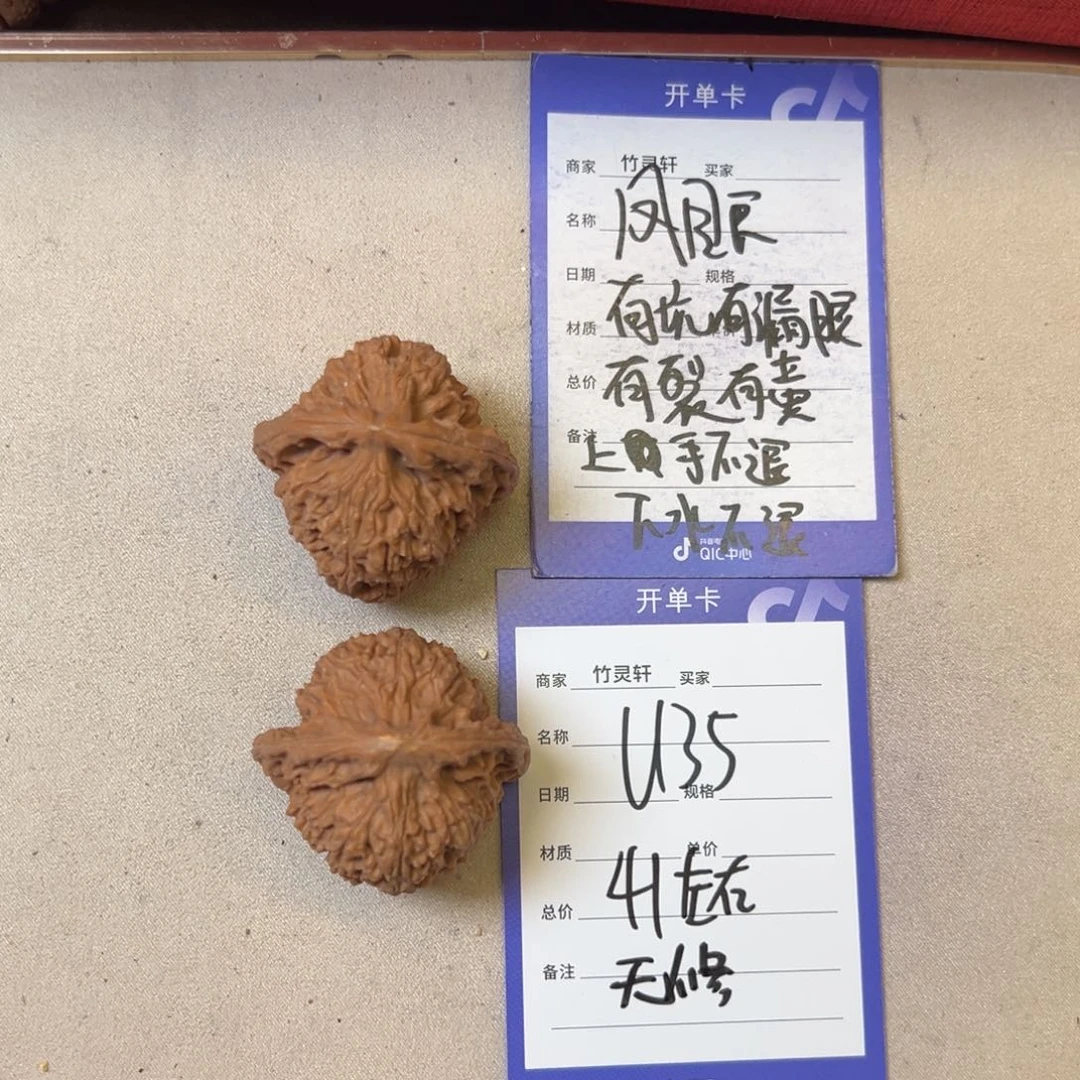 开单卡
商家 竹灵轩 买家
名称 凤眼
日期 规格
材质 有坑有漏眼
总价 有裂有黄
备注 上手不退
下水不退
QIC中心
开单卡
商家 竹灵轩 买家
名称 U35
日期 规格
材质 单价
总价 41左右
备注 无修